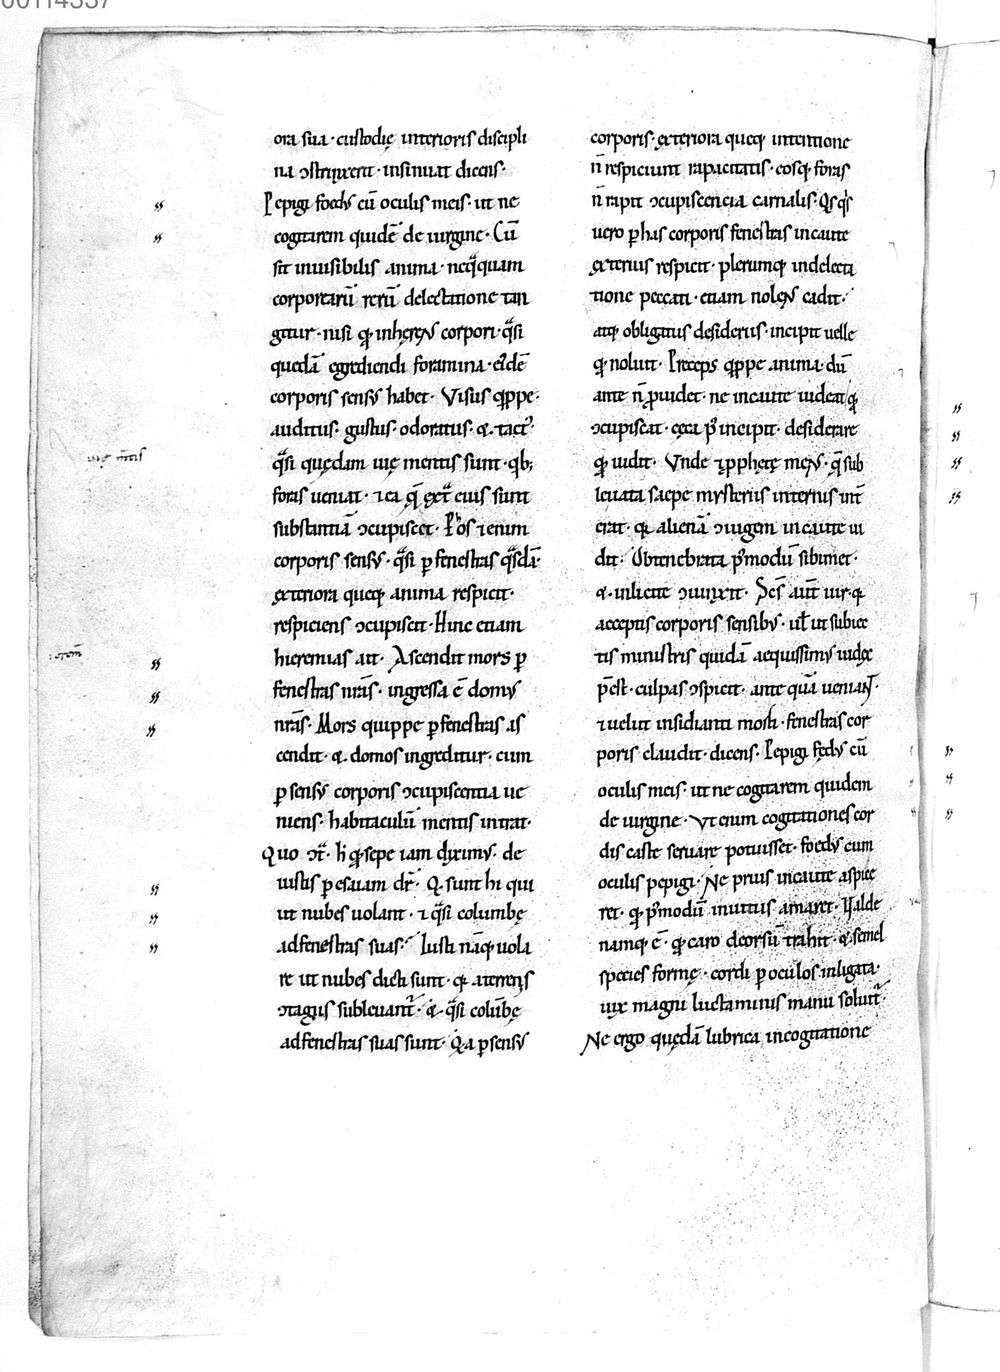 00114337
ora sua · custodię interioris discipli
na ↄstrinxerit · insinuat dicens ·
Pepigi foedꝰ cū oculis meis · ut ne
cogitarem quidē de uirgine · Cū
sit inuisibilis anima · neq̄quam
corporearū rerū delectatione tan
gitur · nisi qđ inherenſ corpori · q̄si
quedā egrediendi foramina · eidē
corporis sensꝰ habet · Visus q̄ppe ·
auditus · gustus · odoratus · & tactꝰ ·
q̄si quędam uię mentis sunt · qb;
foras ueniat · ⁊ ea quę extͣ eius sunt
substantiā ↄcupiscet · Per hos ⁊enim
corporis sensꝰ · q̄si ꝑ fenestras q̄sdā ·
exteriora queq; anima respicit ·
respiciens ↄcupiscit · Hinc etiam
hieremias ait · Ascendit mors ꝑ
fenestras nrās · ingressa ē domꝰ
nrās · Mors quippe ꝑ fenestras as
cendit · & domos ingreditur · cum
ꝑ sensꝰ corporis ↄcupiscentia ue
niens · habitaculū mentis intrat ·
Quo ↄtͣ · h̄ qđ sepe iam diximꝰ · de
iustis ꝑ esaiam dr̄ · Q̇ sunt hi qui
ut nubes uolant · ⁊ q̄si columbę
ad fenestras suas · Iusti nāq; uola
re ut nubes dicti sunt · qa a terrenis
ↄtagiis subleuantͬ · & q̄si colūbę
ad fenestras suas sunt · Qa ꝑ sensꝰ
corporis · exteriora queq; intentione
n̄ respiciunt rapacitatis · eosq; foras
n̄ rapit ↄcupiscencia carnalis · Qsqͥs
uero ꝑ has corporis fenestras incaute
exterius respicit · plerumq; in delecta
tione peccati · etiam nolenſ cadit ·
atq; obligatus desideriis · incipit uelle
qđ noluit · Preceps q̄ppe anima · dū
ante n̄ ꝓuidet · ne incaute uideat qđ
ↄcupiscat · ceca p̄ incipit · desiderare
qđ uidit · Vnde ⁊ ꝓphetę menſ · quę sub
leuata saepe mysteriis internis int̄
erat · qa alienā ↄiugem incaute ui
dit · Obtenebrata p̄modū sibimet ·
& inlicite ↄiunxit · Scs̄ aut̄ uir · qi
acceptis corporis sensibꝰ · uł ut subiec
tis ministris quidā aequissimꝰ iudex
p̄est · culpas ↄspicit · ante quā ueniant ·
⁊ uelut insidianti morti · fenestras cor
poris claudit · dicens · Pepigi fędꝰ cū
oculis meis · ut ne cogitarem quidem
de uirgine · Vt enim cogitationes cor
dis caste seruare potuisset · foedꝰ cum
oculis pepigi · Ne prius incaute aspice
ret · qđ p̄modū inuitus amaret · Valde
namq; ē · qđ caro deorsū trahit · & semel
species formę · cordi ꝑ oculos inligata ·
uix magni luctaminis manu soluitͬ ·
Ne ergo quędā lubrica in cogitatione